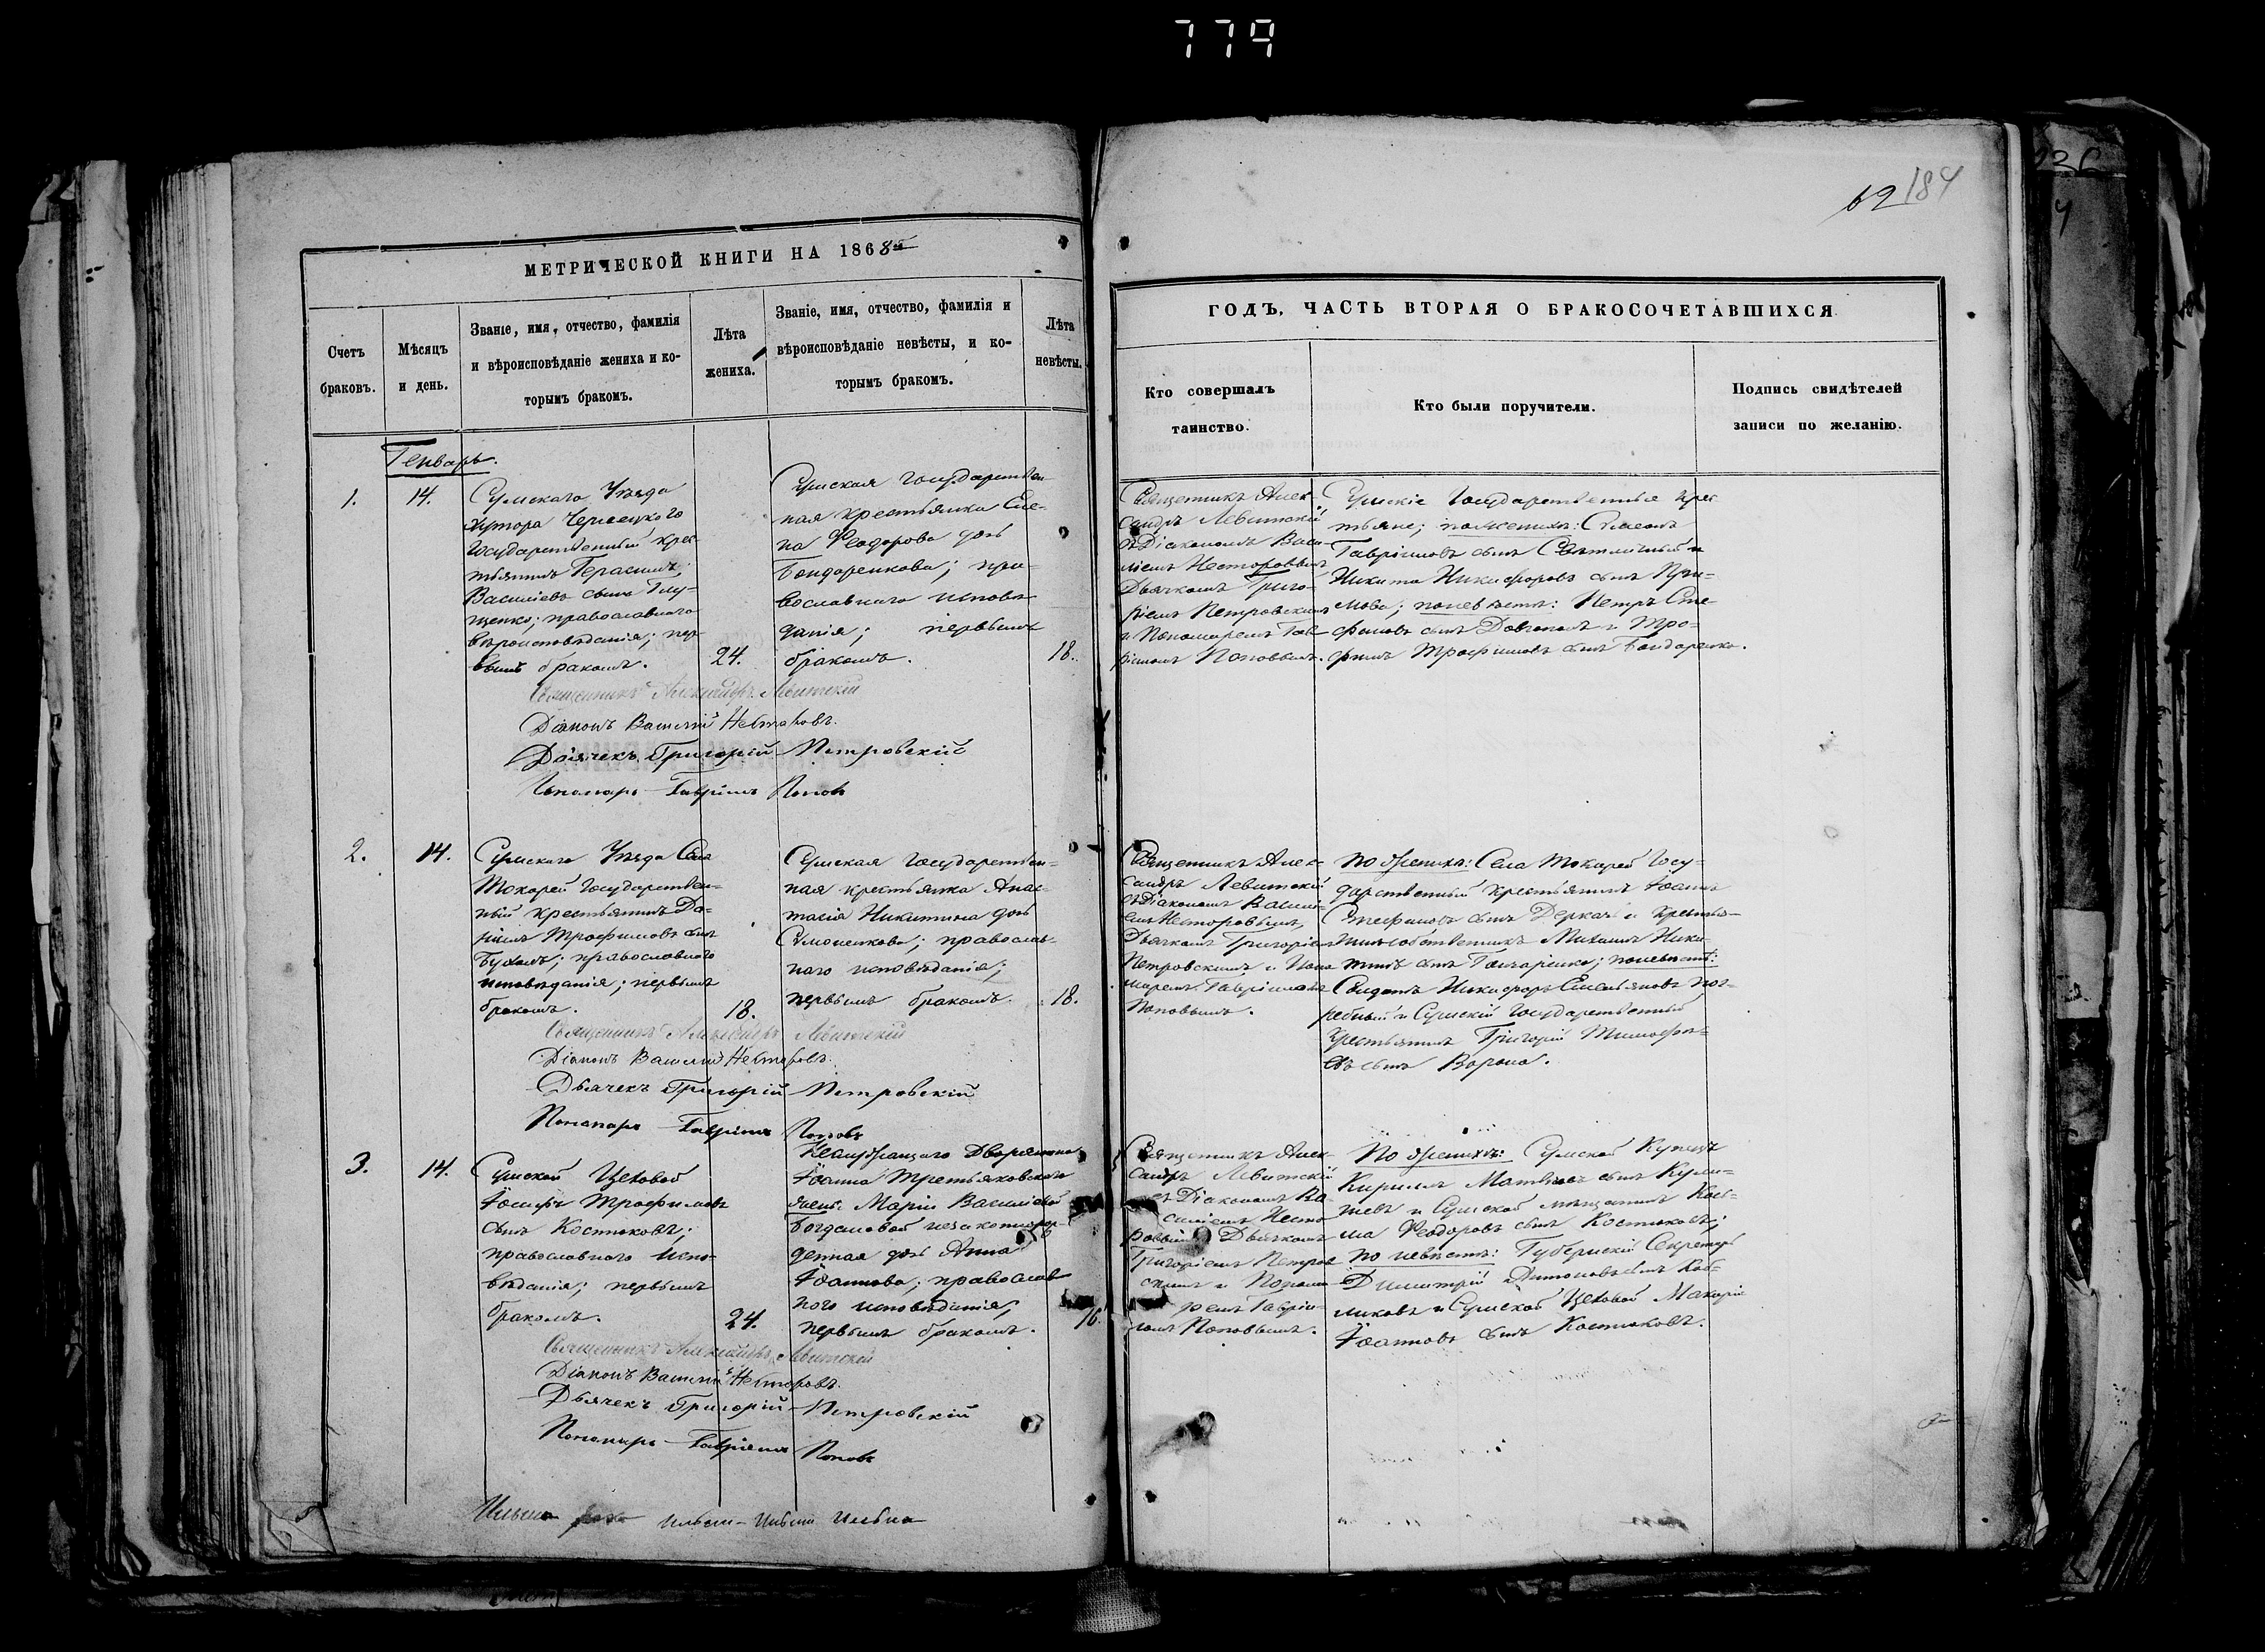 779
62 184
МЕТРИЧЕСКОЙ КНИГИ НА 1868й
Счетъ браковъ.
Мѣсяцъ и день.
Званіе, имя, отчество, фамилія
и вѣроисповѣданіе жениха и ко-
торымъ бракомъ.
Лѣта
жениха.
Званіе, имя, отчество, фамилія и
вѣроисповѣданіе невѣсты, и ко-
торымъ бракомъ.
Лѣта
невѣсты.
ГОДЪ, ЧАСТЬ ВТОРАЯ О БРАКОСОЧЕТАВШИХСЯ.
Кто совершалъ
таинство.
Кто были поручители.
Подпись свидѣтелей
записи по желанію.
Генварь.
1.
14.
Сумскаго Уѣзда
хутора
Государственный крес-
тьянинъ Герасимъ
Василіевъ сынъ Глу-
щенко; православнаго
вѣроисповѣданія; пер-
вымъ бракомъ.
24.
Сумская Государствен-
ная крестьянка Еле-
на Феодорова дочь
Бондаренкова; пра-
вославнаго исповѣ
данія; первымъ
бракомъ.
18.
Священникъ Алек-
сандръ Левитскій
съ Діакономъ Васи-
ліемъ Несторовымъ
Дьячкомъ Григо-
ріемъ Петровскимъ
и Пономаремъ Гав-
ріиломъ Поповымъ.
Сумскіе Государственные крес
тьяне; по женихѣ: Симеонъ
Гавріиловъ сынъ и
Никита Никифоровъ сынъ При-
мова; по невѣстѣ: Петръ Сте-
фановъ сынъ и Тро-
фимъ Трофимовъ сынъ Бондаренко.
Священникъ Александръ Левитскій
Діаконъ Василій Несторовъ.
Дьячекъ Григорій Петровскій
Пономарь Гавріилъ Поповъ
2.
14.
Сумскаго Уѣзда Села
Токарей Государствен-
ный крестьянинъ Да-
ніилъ Трофимовъ сынъ
православнаго
исповѣданія; первымъ
бракомъ.
18.
Сумская Государствен-
ная крестьянка Анас-
тасія Никитина дочь
Симоненкова; православ-
наго исповѣданія;
первымъ бракомъ.
18.
Священникъ Алек-
сандръ Левитскій
съ Діакономъ Васили-
емъ Несторовымъ,
Дьячкомъ Григоріемъ
Петровскимъ и Поно
маремъ Гавріиломъ
Поповымъ.
По женихѣ: Села Токарей Госу-
дарственный крестьянинъ Іоаннъ
Стефановъ сынъ Деркачъ и крестья-
нинъ собственникъ Михаилъ Ники-
тинъ сынъ Гончаренко; по невѣстѣ:
Солдатъ Никифоръ Емельяновъ Пог-
ребный и Сумскій Государственный
Крестьянинъ Григорій Тимофее-
въ сынъ Ворона.
Священникъ Александръ Левитскій
Діаконъ Василій Несторовъ.
Дьячекъ Григорій Петровскій
Пономарь Гавріилъ Поповъ
3.
14.
Сумской Цеховой
Іосифъ Трофимовъ
сынъ Костюковъ;
православнаго испо-
вѣданія; первымъ
бракомъ.
24.
Дворянина
Іоанна Третьяковскаго
Маріи Василіевой
Богдановой незаконнорож-
денная дочь Анна
Іоаннова; православ
наго исповѣданія;
первымъ бракомъ.
16.
Священникъ Алек-
сандръ Левитскій
съ Діакономъ Ва-
силіемъ Несто
ровымъ Дьячкомъ
Григоріемъ Петров
скимъ и Понома
ремъ Гаврiи-
ломъ Поповымъ.
По женихѣ: Сумской Купецъ
Кириллъ Матвѣевъ сынъ Кули-
шевъ и Сумской мѣщанинъ Кось-
ма Феодоровъ сынъ Костюковъ;
по невѣстѣ: Губернскій Секретарь
Димитрій Антоновъ сынъ
и Сумской Цеховой Макарій
Іоанновъ сынъ Костюковъ.
Священникъ Александръ Левитскій
Діаконъ Василій Несторовъ.
Дьячекъ Григорій Петровскій
Пономарь Гавріилъ Поповъ